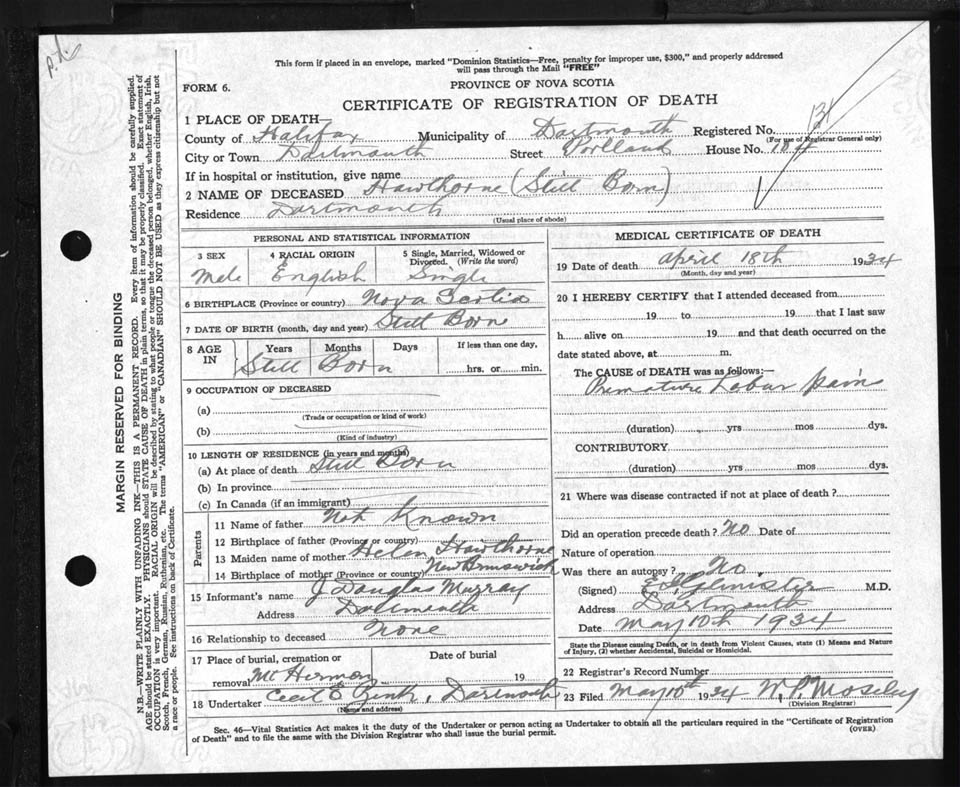 This form if placed in an envelope, marked "Dominion Statistics—Free, penalty for improper use, $300," and properly addressed
will pass through the Mail "FREE"
FORM 6.
PROVINCE OF NOVA SCOTIA
CERTIFICATE OF REGISTRATION OF DEATH
1 PLACE OF DEATH—
County of Halifax Municipality of Dartmouth Registered No.
(For use of Registrar General only)
City or Town Dartmouth Street Portland House No.
If in hospital or institution, give name
2 NAME OF DECEASED Hawthorne (Still Born)
Residence Dartmouth
(Usual place of abode)
PERSONAL AND STATISTICAL INFORMATION
3 SEX 4 RACIAL ORIGIN 5 Single, Married, Widowed or
Divorced. (Write the word)
Male English Single
6 BIRTHPLACE (Province or country) Nova Scotia
7 DATE OF BIRTH (month, day and year) Still Born
8 AGE IN Years Months Days If less than one day,
Still Born hrs. or min.
9 OCCUPATION OF DECEASED
(a)
(Trade or occupation or kind of work)
(b)
(Kind of industry)
10 LENGTH OF RESIDENCE (in years and months)
(a) At place of death Still Born
(b) In province
(c) In Canada (if an immigrant)
Parents
11 Name of father Not Known
12 Birthplace of father (Province or country)
13 Maiden name of mother Helen Hawthorne
14 Birthplace of mother (Province or country) New Brunswick
15 Informant's name J Douglas Murray
Address Dartmouth
16 Relationship to deceased None
17 Place of burial, cremation or Date of burial
removal Mt Hermon 19
18 Undertaker Cecil E , Dartmouth
(Name and address)
MEDICAL CERTIFICATE OF DEATH
19 Date of death April 18th 1934
(Month, day and year)
20 I HEREBY CERTIFY that I attended deceased from
19 to 19 that I last saw
h alive on 19 and that death occurred on the
date stated above, at m.
The CAUSE of DEATH was as follows:—
Premature Labor pains
(duration) yrs mos dys.
CONTRIBUTORY
(duration) yrs mos dys.
21 Where was disease contracted if not at place of death?
Did an operation precede death? No Date of
Nature of operation
Was there an autopsy? No.
(Signed) M.D.
Address Dartmouth
Date May 10th 1934
State the Disease causing Death, or in death from Violent Causes, state (1) Means and Nature
of Injury, (2) whether Accidental, Suicidal or Homicidal.
22 Registrar's Record Number
23 Filed May 10th 1934 W. P. Moseley
(Division Registrar)
Sec. 46—Vital Statistics Act makes it the duty of the Undertaker or person acting as Undertaker to obtain all the particulars required in the "Certificate of Registration
of Death" and to file the same with the Division Registrar who shall issue the burial permit. (OVER)
MARGIN RESERVED FOR BINDING
N.B.—WRITE PLAINLY WITH UNFADING INK—THIS IS A PERMANENT RECORD. Every item of information should be carefully supplied.
AGE should be stated EXACTLY. PHYSICIANS should STATE CAUSE OF DEATH in plain terms, so that it may be properly classified. Exact statement of
OCCUPATION is very important. RACIAL ORIGIN will be described by stating to what people or tongue the deceased person belonged, whether English, Irish,
Scotch, French, German, Russian, Ruthenian, etc. The terms "AMERICAN" or "CANADIAN" SHOULD NOT BE USED as they express citizenship but not
a race or people. See instructions on back of Certificate.